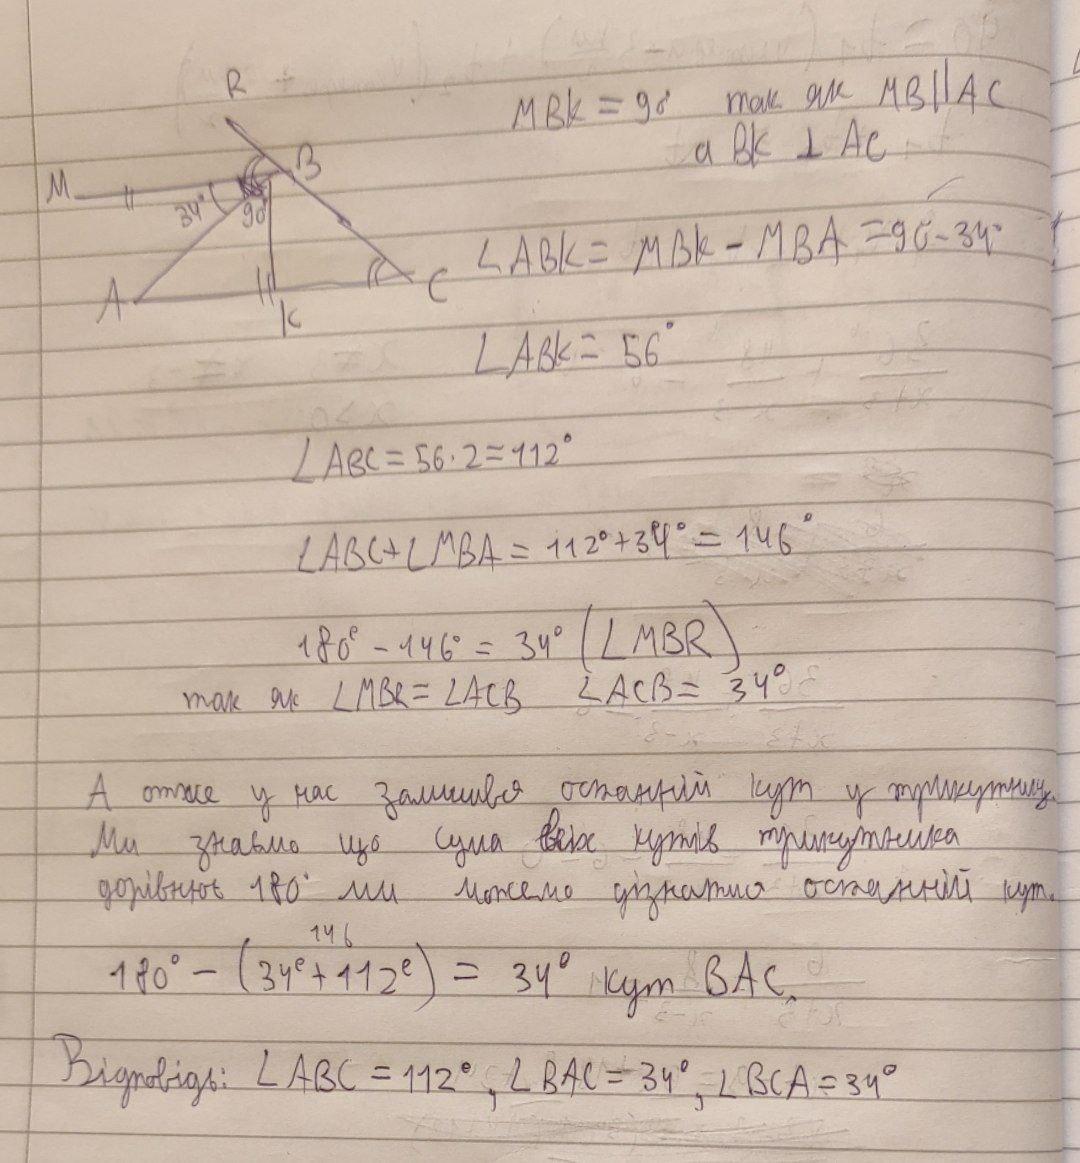 R
MBK = 90° так як MB||AC
а BK ⊥ AC
M
B
34°
90°
A
K
C
∠ABK = MBK - MBA = 90 - 34°
∠ABK = 56°
∠ABC = 56 · 2 = 112°
∠ABC + ∠MBA = 112° + 34° = 146°
180° - 146° = 34° (∠MBR)
так як ∠MBR = ∠ACB ∠ACB = 34°
А отже у нас залишився останній кут у трикутнику.
Ми знаємо що сума всіх кутів трикутника
дорівнює 180° ми можемо дізнатись останній кут.
146
180° - (34° + 112°) = 34° кут BAC.
Відповідь: ∠ABC = 112°, ∠BAC = 34°, ∠BCA = 34°